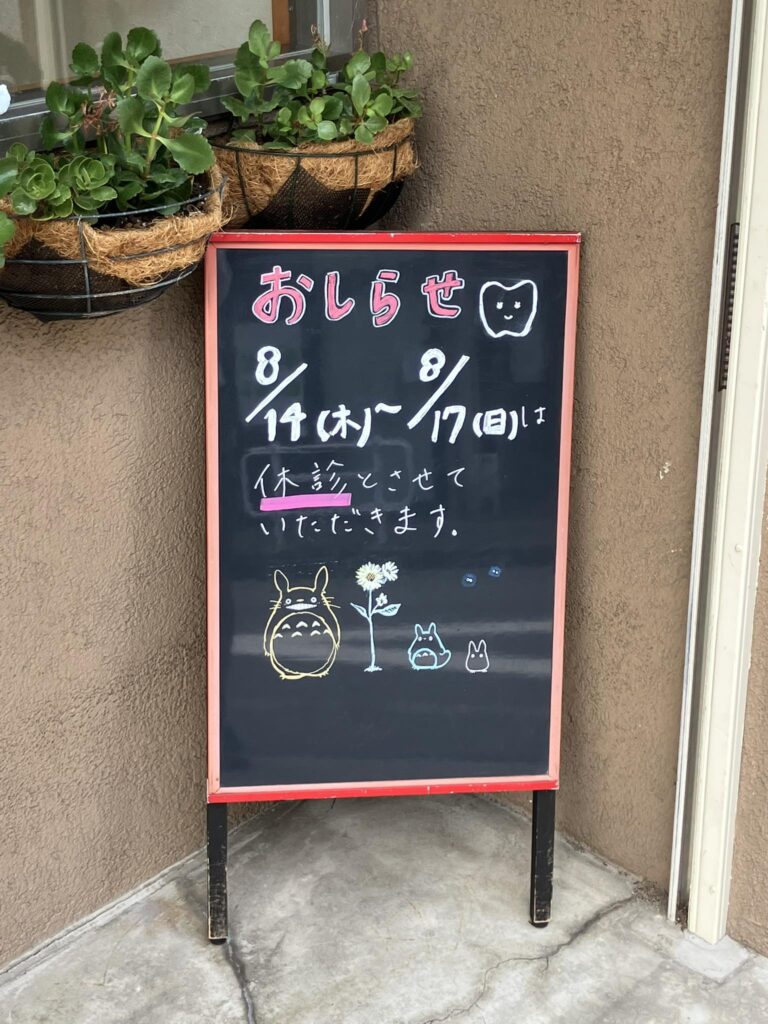 おしらせ
8/14(木)~8/17(日)は
休診とさせて
いただきます.